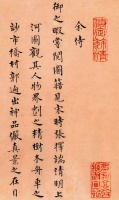 余侍
御之暇嘗閱圖籍見宋時張擇端清明上
河圖觀其人物界劃之精樹木舟車之
妙市橋村郭迥出神品儼真景之在目